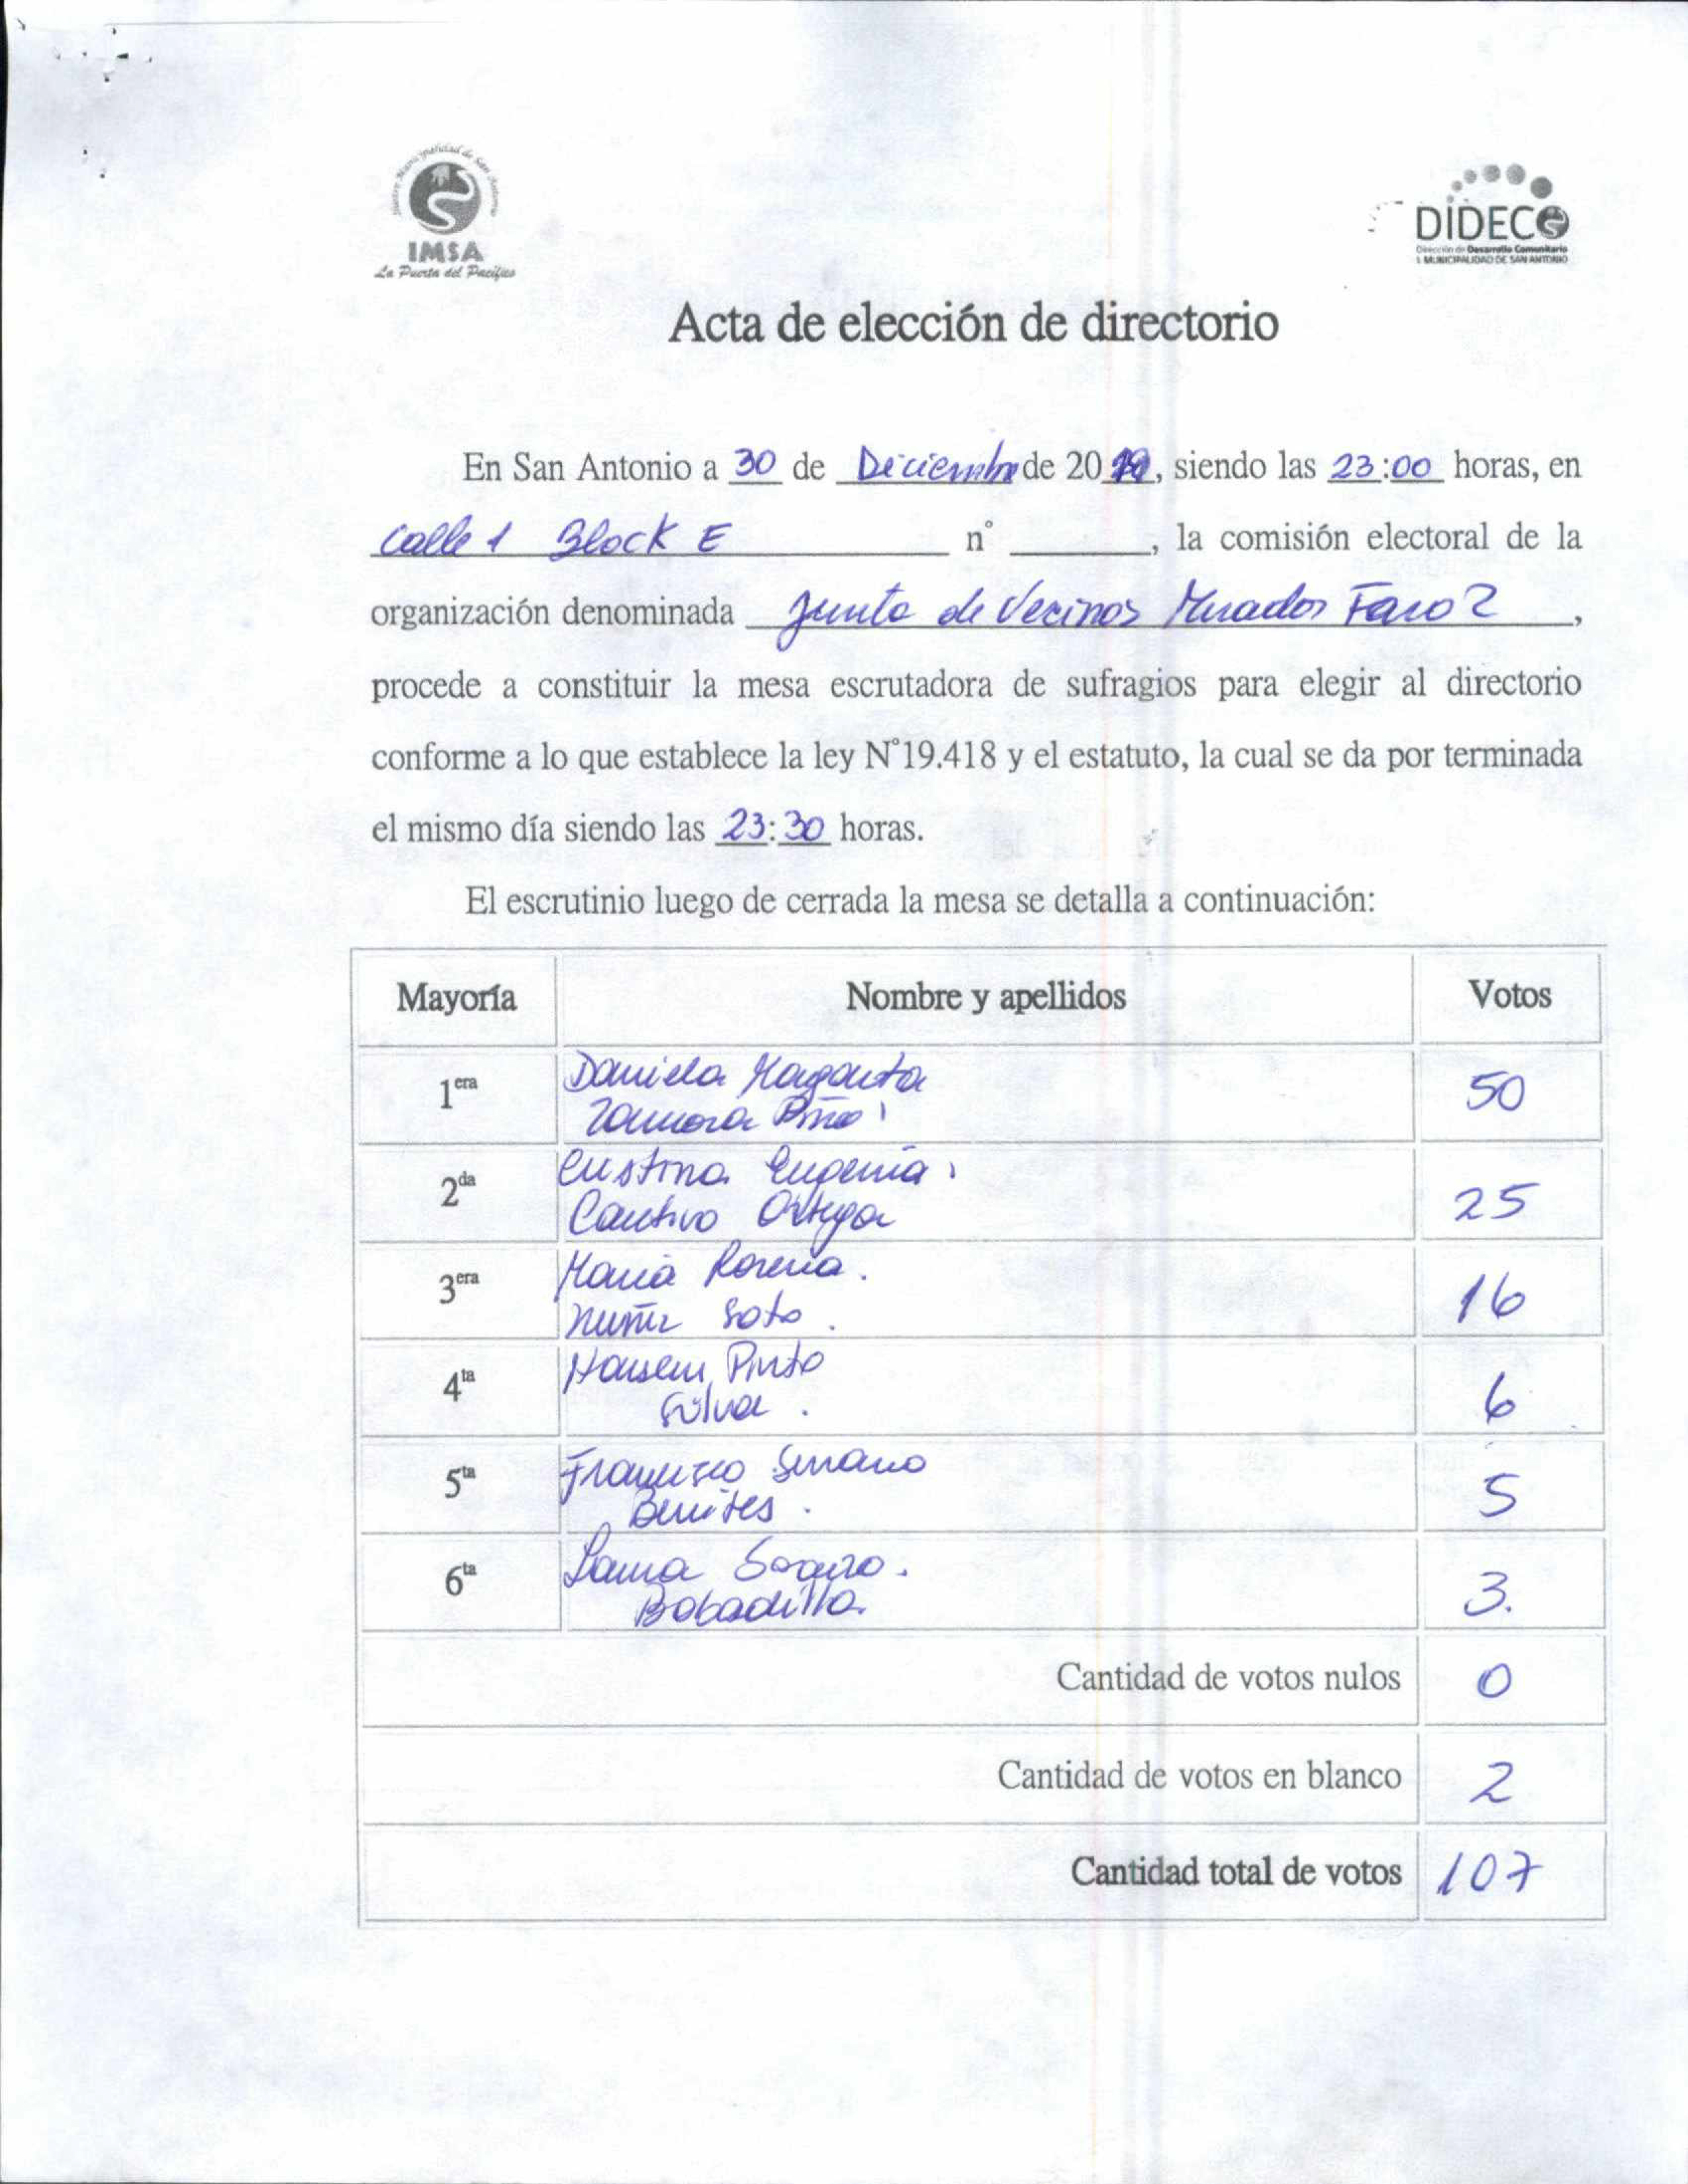 Ilustre Municipalidad de San Antonio
IMSA
La Puerta del Pacífico
DIDECO
Dirección de Desarrollo Comunitario
I. MUNICIPALIDAD DE SAN ANTONIO
Acta de elección de directorio
En San Antonio a 30 de Diciembre de 20, siendo las 23:00 horas, en
Calle 1 Block E n° , la comisión electoral de la
organización denominada Junta de Vecinos Mirador Faro 2,
procede a constituir la mesa escrutadora de sufragios para elegir al directorio
conforme a lo que establece la ley N°19.418 y el estatuto, la cual se da por terminada
el mismo día siendo las 23:30 horas.
El escrutinio luego de cerrada la mesa se detalla a continuación:
Mayoría Nombre y apellidos Votos
1era Daniela Magarita 50
Zamora Pino
2da Cristina Eugenia 25
Cautivo Ortega
3era Maria 16
Nuñez Soto.
4ta Pinto 6
Silva.
5ta Francisco Serrano 5
Benites.
6ta 3.
Bobadilla.
Cantidad de votos nulos 0
Cantidad de votos en blanco 2
Cantidad total de votos 107